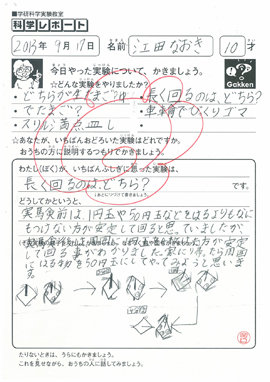 ■学研科学実験教室
科学レポート
2013年 9月17日 名前 江田なおき 10才
今日やった実験について、かきましょう。
☆どんな実験をやりましたか?
・長く回るのは、どちら?
・でたまご?
・車輪でびっくりゴマ
Gakken
☆あなたが、いちばんおどろいた実験はどれですか。
おうちの方に説明するつもりでかきましょう。
わたし(ぼく)が、いちばんふしぎに思った実験は、
長く回るのは、どちら?
です。
どうしてかというと、
実験前は1円玉や50円玉などをはるよりもなに
もつけない方が安定して回ると思っていましたが、
って回る事がわかりました。家に帰ったら周囲
にはる物を50円玉にしてやってみようと思いま
す。
たりないときは、うらにもかきましょう。
これを見せながら、おうちの人に話してみましょう。